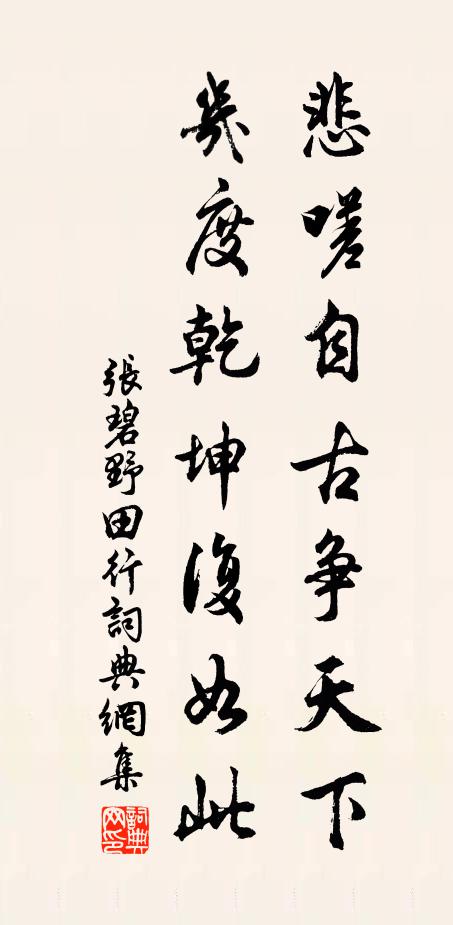 悲嗟自古争天下
幾度乾坤復如此
張碧野田行詞典網集
詞典網印